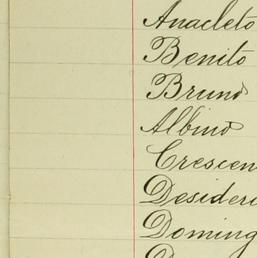 Anacleto
Benito
Bruno
Albino
Crescen
Desideri
Doming